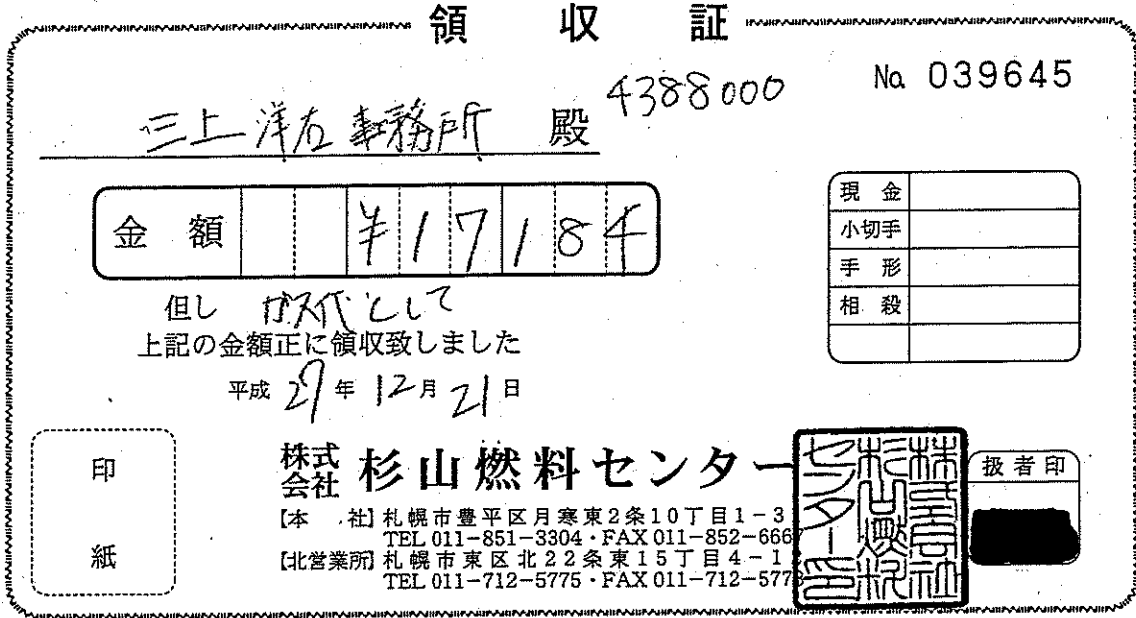 領収証
No 039645
4388000
三上洋右事務所 殿
金額 ¥17184
但し ガス代として
上記の金額正に領収致しました
平成 27年 12月 21日
現金
小切手
手形
相殺
印紙
株式会社 杉山燃料センター
【本 社】札幌市豊平区月寒東2条10丁目1-3
TEL 011-851-3304・FAX 011-852-666
【北営業所】札幌市東区北22条東15丁目4-1
TEL 011-712-5775・FAX 011-712-577
株式会社杉山燃料センター印
扱者印